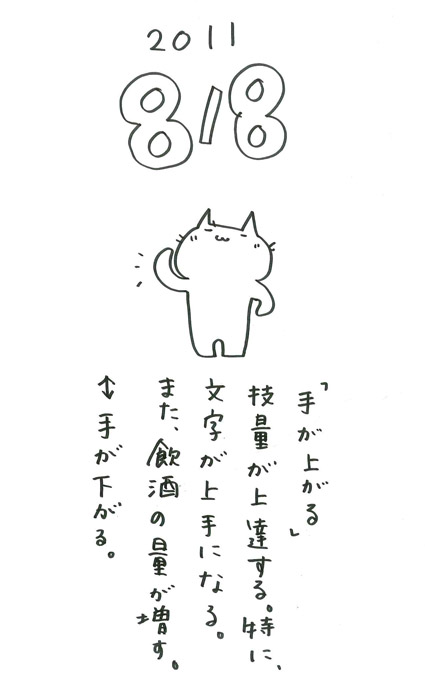 2011
8/8
「手が上がる」
技量が上達する。特に、
文字が上手になる。
また、飲酒の量が増す。
↔手が下がる。